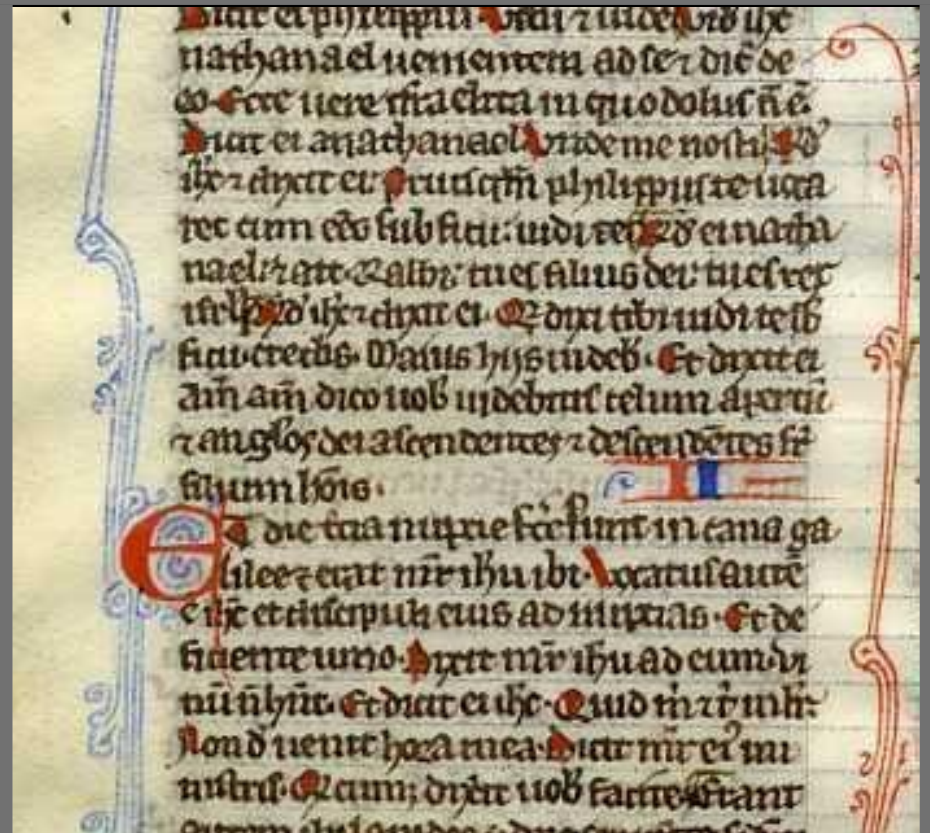 Dicit ei philippus. Veni ⁊ uide. Vid ihc
nathanael uenientem ad se ⁊ dic̄ de
eo. Ecce uere israelita in quo dolus n̄ ē.
Dicit ei nathanael. Vnde me nosti. R͞d
ihc ⁊ dixit ei. Priusq̄m philippus te uoca
ret cum ees sub ficu: uidi te. R͞d ei natha
nael: ⁊ ait. Rabbi tu es filius dei: tu es rex
isrl. R͞d ihc ⁊ dixit ei. Q dixi tibi uidi te sb
ficu. credis. Maius hijs uideb. Et dixit ei
Am̄ am̄ dico uob uidebitis celum apertū
⁊ anglos dei ascendentes ⁊ descendētes sr̄
filium hōis.
II
ET die t̄cia nuptie fc̄e sunt in cana ga
lilee ⁊ erat mr̄ ihu ibi. Vocatus autē
ē ihc et discipuli eius ad nuptias. Et de
ficiente uino. Dixit mr̄ ihu ad eum. vi
nū n̄ hn̄t. Et dicit ei ihc. Quid m ⁊ t mlr:
Nond uenit hora mea. Dicit mr̄ ei mi
nistris. Qcumq; dixerit uob facite. Erant